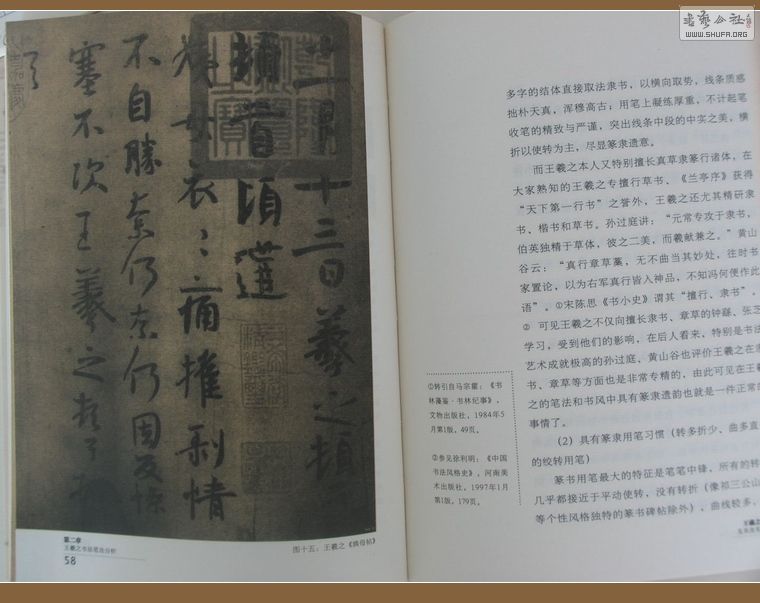 書藝公社
WWW.SHUFA.ORG
十一月十三日羲之頓
首頓首頃遘
姨母哀哀痛摧剥情
不自勝奈何奈何因反惨
塞不次王羲之頓首頓首
第二章
王羲之书法笔法分析
58
图十五：王羲之《姨母帖》
多字的结体直接取法隶书，以横向取势，线条质感
拙朴天真，浑穆高古；用笔上凝练厚重，不计起笔
收笔的精致与严谨，突出线条中段的中实之美，横
折以使转为主，尽显篆隶遗意。
而王羲之本人又特别擅长真草隶篆行诸体，在
大家熟知的王羲之专擅行草书、《兰亭序》获得
“天下第一行书”之誉外，王羲之还尤其精研隶
书、楷书和草书。孙过庭讲：“元常专攻于隶书，
伯英独精于草体，彼之二美，而羲献兼之。”黄山
谷云：“真行章草藁，无不曲当其妙处，往时书
家置论，以为右军真行皆入神品，不知冯何便作此
语”。①宋陈思《书小史》谓其“擅行、隶书”，
② 可见王羲之不仅向擅长隶书、章草的钟繇、张芝
学习，受到他们的影响，在后人看来，特别是书法
艺术成就极高的孙过庭、黄山谷也评价王羲之在隶
书、章草等方面也是非常专精的，由此可见在王羲
之的笔法和书风中具有篆隶遗韵也就是一件正常的
事情了。
（2）具有篆隶用笔习惯（转多折少、曲多直
的绞转用笔）
篆书用笔最大的特征是笔笔中锋，所有的转
几乎都接近于平动使转，没有转折（像祁三公山
等个性风格独特的篆书碑帖除外），曲线较多，
①转引自马宗霍：《书
林藻鉴·书林纪事》，
文物出版社，1984年5
月第1版，49页。
②参见徐利明：《中国
书法风格史》，河南美
术出版社，1997年1月
第1版，179页。
王羲之